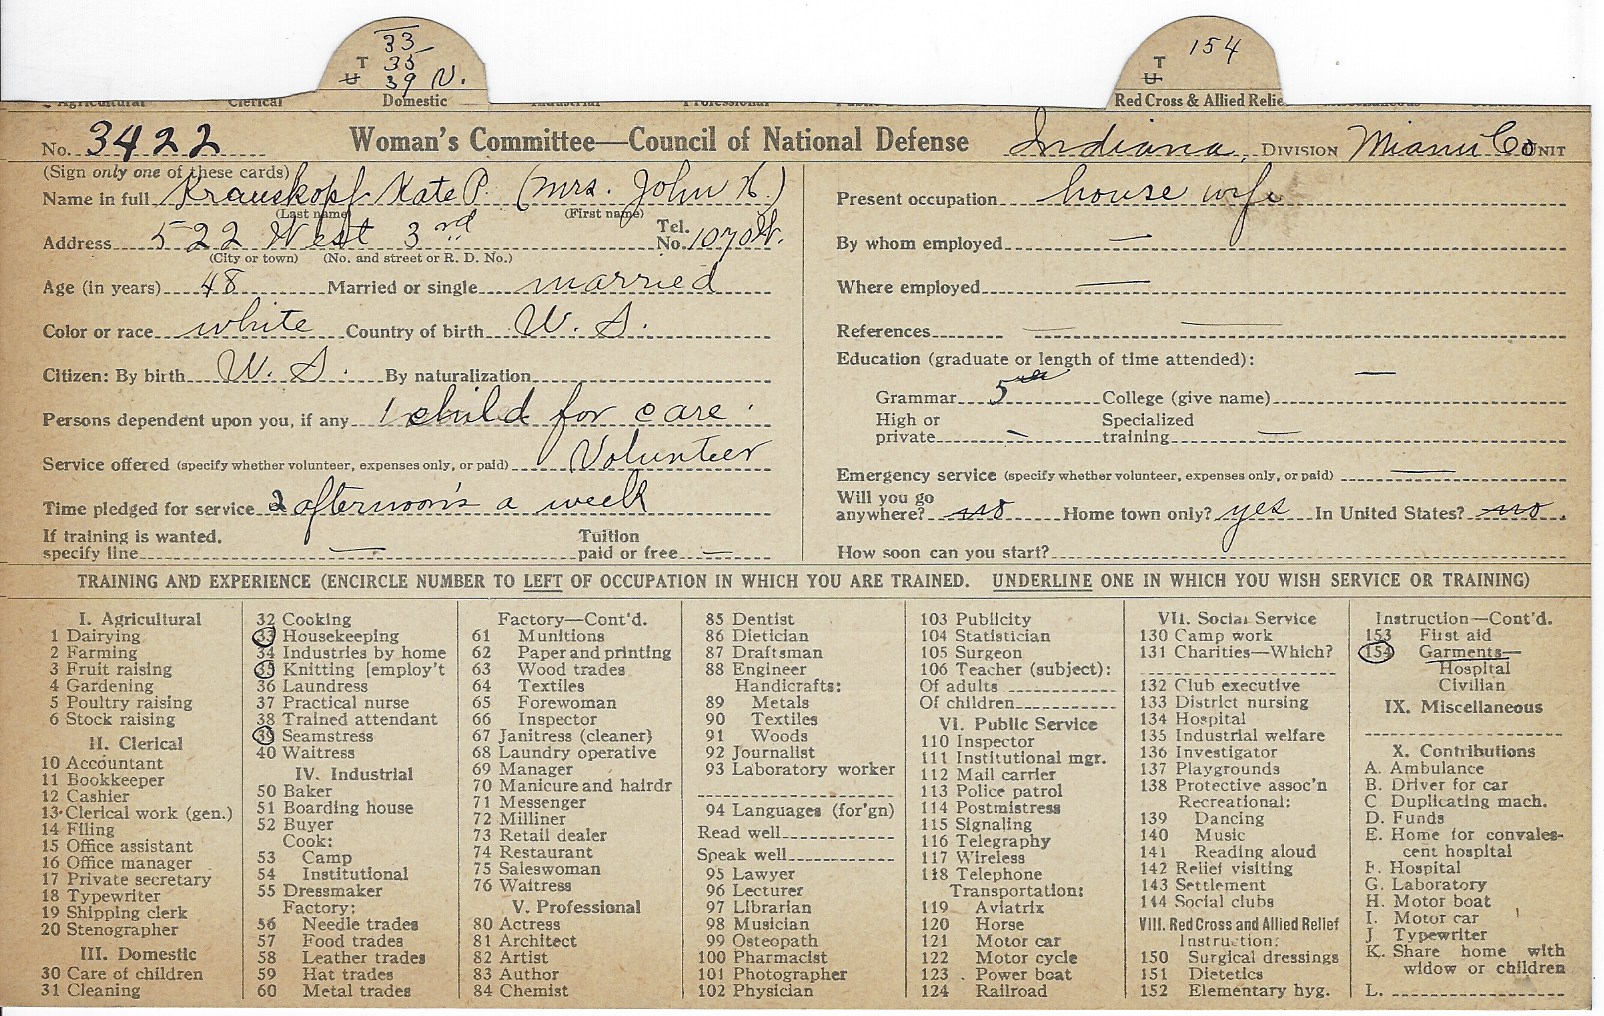 33
T 35
U 39 V.
154
T
U
Agricultural Clerical Domestic Industrial Professional Red Cross & Allied Relie
No. 3422 Woman's Committee—Council of National Defense Indiana, DIVISION Miami Co UNIT
(Sign only one of these cards)
Name in full Krauskopf Kate P. (Mrs. John H.)
(Last name) (First name)
Address 522 West 3rd Tel. No. 1070W.
(City or town) (No. and street or R. D. No.)
Age (in years) 48 Married or single married
Color or race white Country of birth U. S.
Citizen: By birth U. S. By naturalization
Persons dependent upon you, if any 1 child for care.
Service offered (specify whether volunteer, expenses only, or paid) Volunteer
Time pledged for service 2 afternoon's a week
If training is wanted, specify line — Tuition paid or free —
Present occupation house wife
By whom employed —
Where employed —
References — —
Education (graduate or length of time attended):
Grammar 5 College (give name) —
High or private — Specialized training —
Emergency service (specify whether volunteer, expenses only, or paid) —
Will you go anywhere? no Home town only? yes In United States? no.
How soon can you start?
TRAINING AND EXPERIENCE (ENCIRCLE NUMBER TO LEFT OF OCCUPATION IN WHICH YOU ARE TRAINED. UNDERLINE ONE IN WHICH YOU WISH SERVICE OR TRAINING)
I. Agricultural
1 Dairying
2 Farming
3 Fruit raising
4 Gardening
5 Poultry raising
6 Stock raising
II. Clerical
10 Accountant
11 Bookkeeper
12 Cashier
13 Clerical work (gen.)
14 Filing
15 Office assistant
16 Office manager
17 Private secretary
18 Typewriter
19 Shipping clerk
20 Stenographer
III. Domestic
30 Care of children
31 Cleaning
32 Cooking
33 Housekeeping
34 Industries by home
35 Knitting [employ't
36 Laundress
37 Practical nurse
38 Trained attendant
39 Seamstress
40 Waitress
IV. Industrial
50 Baker
51 Boarding house
52 Buyer
Cook:
53 Camp
54 Institutional
55 Dressmaker
Factory:
56 Needle trades
57 Food trades
58 Leather trades
59 Hat trades
60 Metal trades
Factory—Cont'd.
61 Munitions
62 Paper and printing
63 Wood trades
64 Textiles
65 Forewoman
66 Inspector
67 Janitress (cleaner)
68 Laundry operative
69 Manager
70 Manicure and hairdr
71 Messenger
72 Milliner
73 Retail dealer
74 Restaurant
75 Saleswoman
76 Waitress
V. Professional
80 Actress
81 Architect
82 Artist
83 Author
84 Chemist
85 Dentist
86 Dietician
87 Draftsman
88 Engineer
Handicrafts:
89 Metals
90 Textiles
91 Woods
92 Journalist
93 Laboratory worker
94 Languages (for'gn)
Read well
Speak well
95 Lawyer
96 Lecturer
97 Librarian
98 Musician
99 Osteopath
100 Pharmacist
101 Photographer
102 Physician
103 Publicity
104 Statistician
105 Surgeon
106 Teacher (subject):
Of adults
Of children
VI. Public Service
110 Inspector
111 Institutional mgr.
112 Mail carrier
113 Police patrol
114 Postmistress
115 Signaling
116 Telegraphy
117 Wireless
118 Telephone
Transportation:
119 Aviatrix
120 Horse
121 Motor car
122 Motor cycle
123 Power boat
124 Railroad
VII. Social Service
130 Camp work
131 Charities—Which?
132 Club executive
133 District nursing
134 Hospital
135 Industrial welfare
136 Investigator
137 Playgrounds
138 Protective assoc'n
Recreational:
139 Dancing
140 Music
141 Reading aloud
142 Relief visiting
143 Settlement
144 Social clubs
VIII. Red Cross and Allied Relief
Instruction:
150 Surgical dressings
151 Dietetics
152 Elementary hyg.
Instruction—Cont'd.
153 First aid
154 Garments—
Hospital
Civilian
IX. Miscellaneous
X. Contributions
A. Ambulance
B. Driver for car
C Duplicating mach.
D. Funds
E. Home for convales-
cent hospital
F. Hospital
G. Laboratory
H. Motor boat
I. Motor car
J. Typewriter
K. Share home with
widow or children
L.